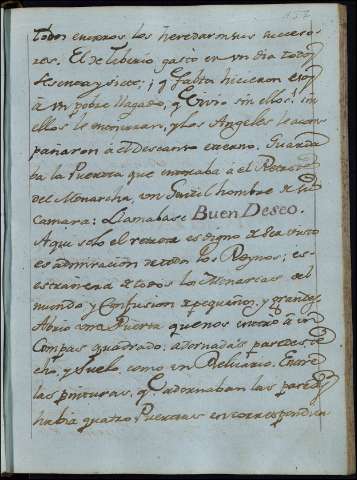 152
todos enteros los heredaron sus suceso
res. El de tiberio gasto en un dia todos
sesenta y siete; ¡y falta hicieron
à un pobre llagado, q vivio sin ellos! sin
ellos le enterraron, y los Angeles le acom
pañaron à el Descanso eterno. Guarda
ba la Puerta que entraba à el Retrete
del Monarcha, un Gentil hombre de su
Camara: Llamabase Buen Deseo.
Aqui solo el retrete es digno de ser visto
es admiracion de todos los Reynos; es
estrañeza de todos los Monarcas del
mundo y Confusion de pequeños, y grandes.
Abrio una Puerta que nos entrò à un
Compas quadrado: adornadas paredes, te
cho, y suelo, como un Relicario. Entre
las pinturas, q. adornaban las paredes
habia quatro Puertas en correspondien